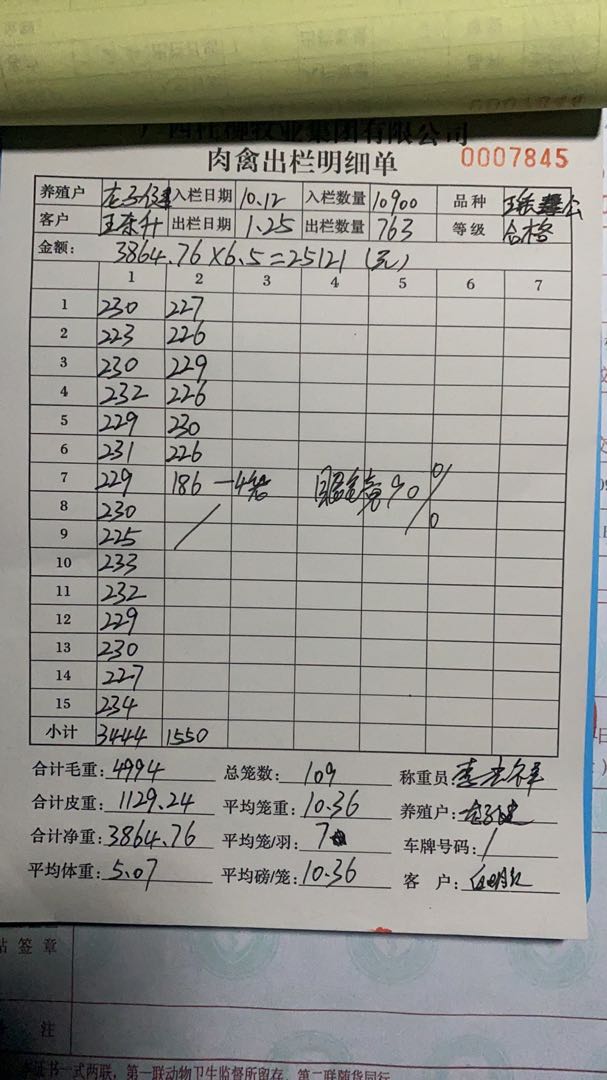 广西桂柳牧业集团有限公司
肉禽出栏明细单 0007845
养殖户 入栏日期 10.12 入栏数量 10900 品种
客户 王东升 出栏日期 1.25 出栏数量 763 等级 合格
金额: 3864.76×6.5=25121(元)
1 2 3 4 5 6 7
1 230 227
2 223 226
3 230 229
4 232 226
5 229 230
6 231 226
7 229 186 —4笼 90%
8 230
9 225 /
10 233
11 232
12 229
13 230
14 227
15 234
小计 3444 1550
合计毛重: 4994 总笼数: 109 称重员:
合计皮重: 1129.24 平均笼重: 10.36 养殖户:
合计净重: 3864.76 平均笼/羽: 7 车牌号码: /
平均体重: 5.07 平均磅/笼: 10.36 客户:
站签章
注
证书一式两联，第一联动物卫生监督所留存，第二联随货同行